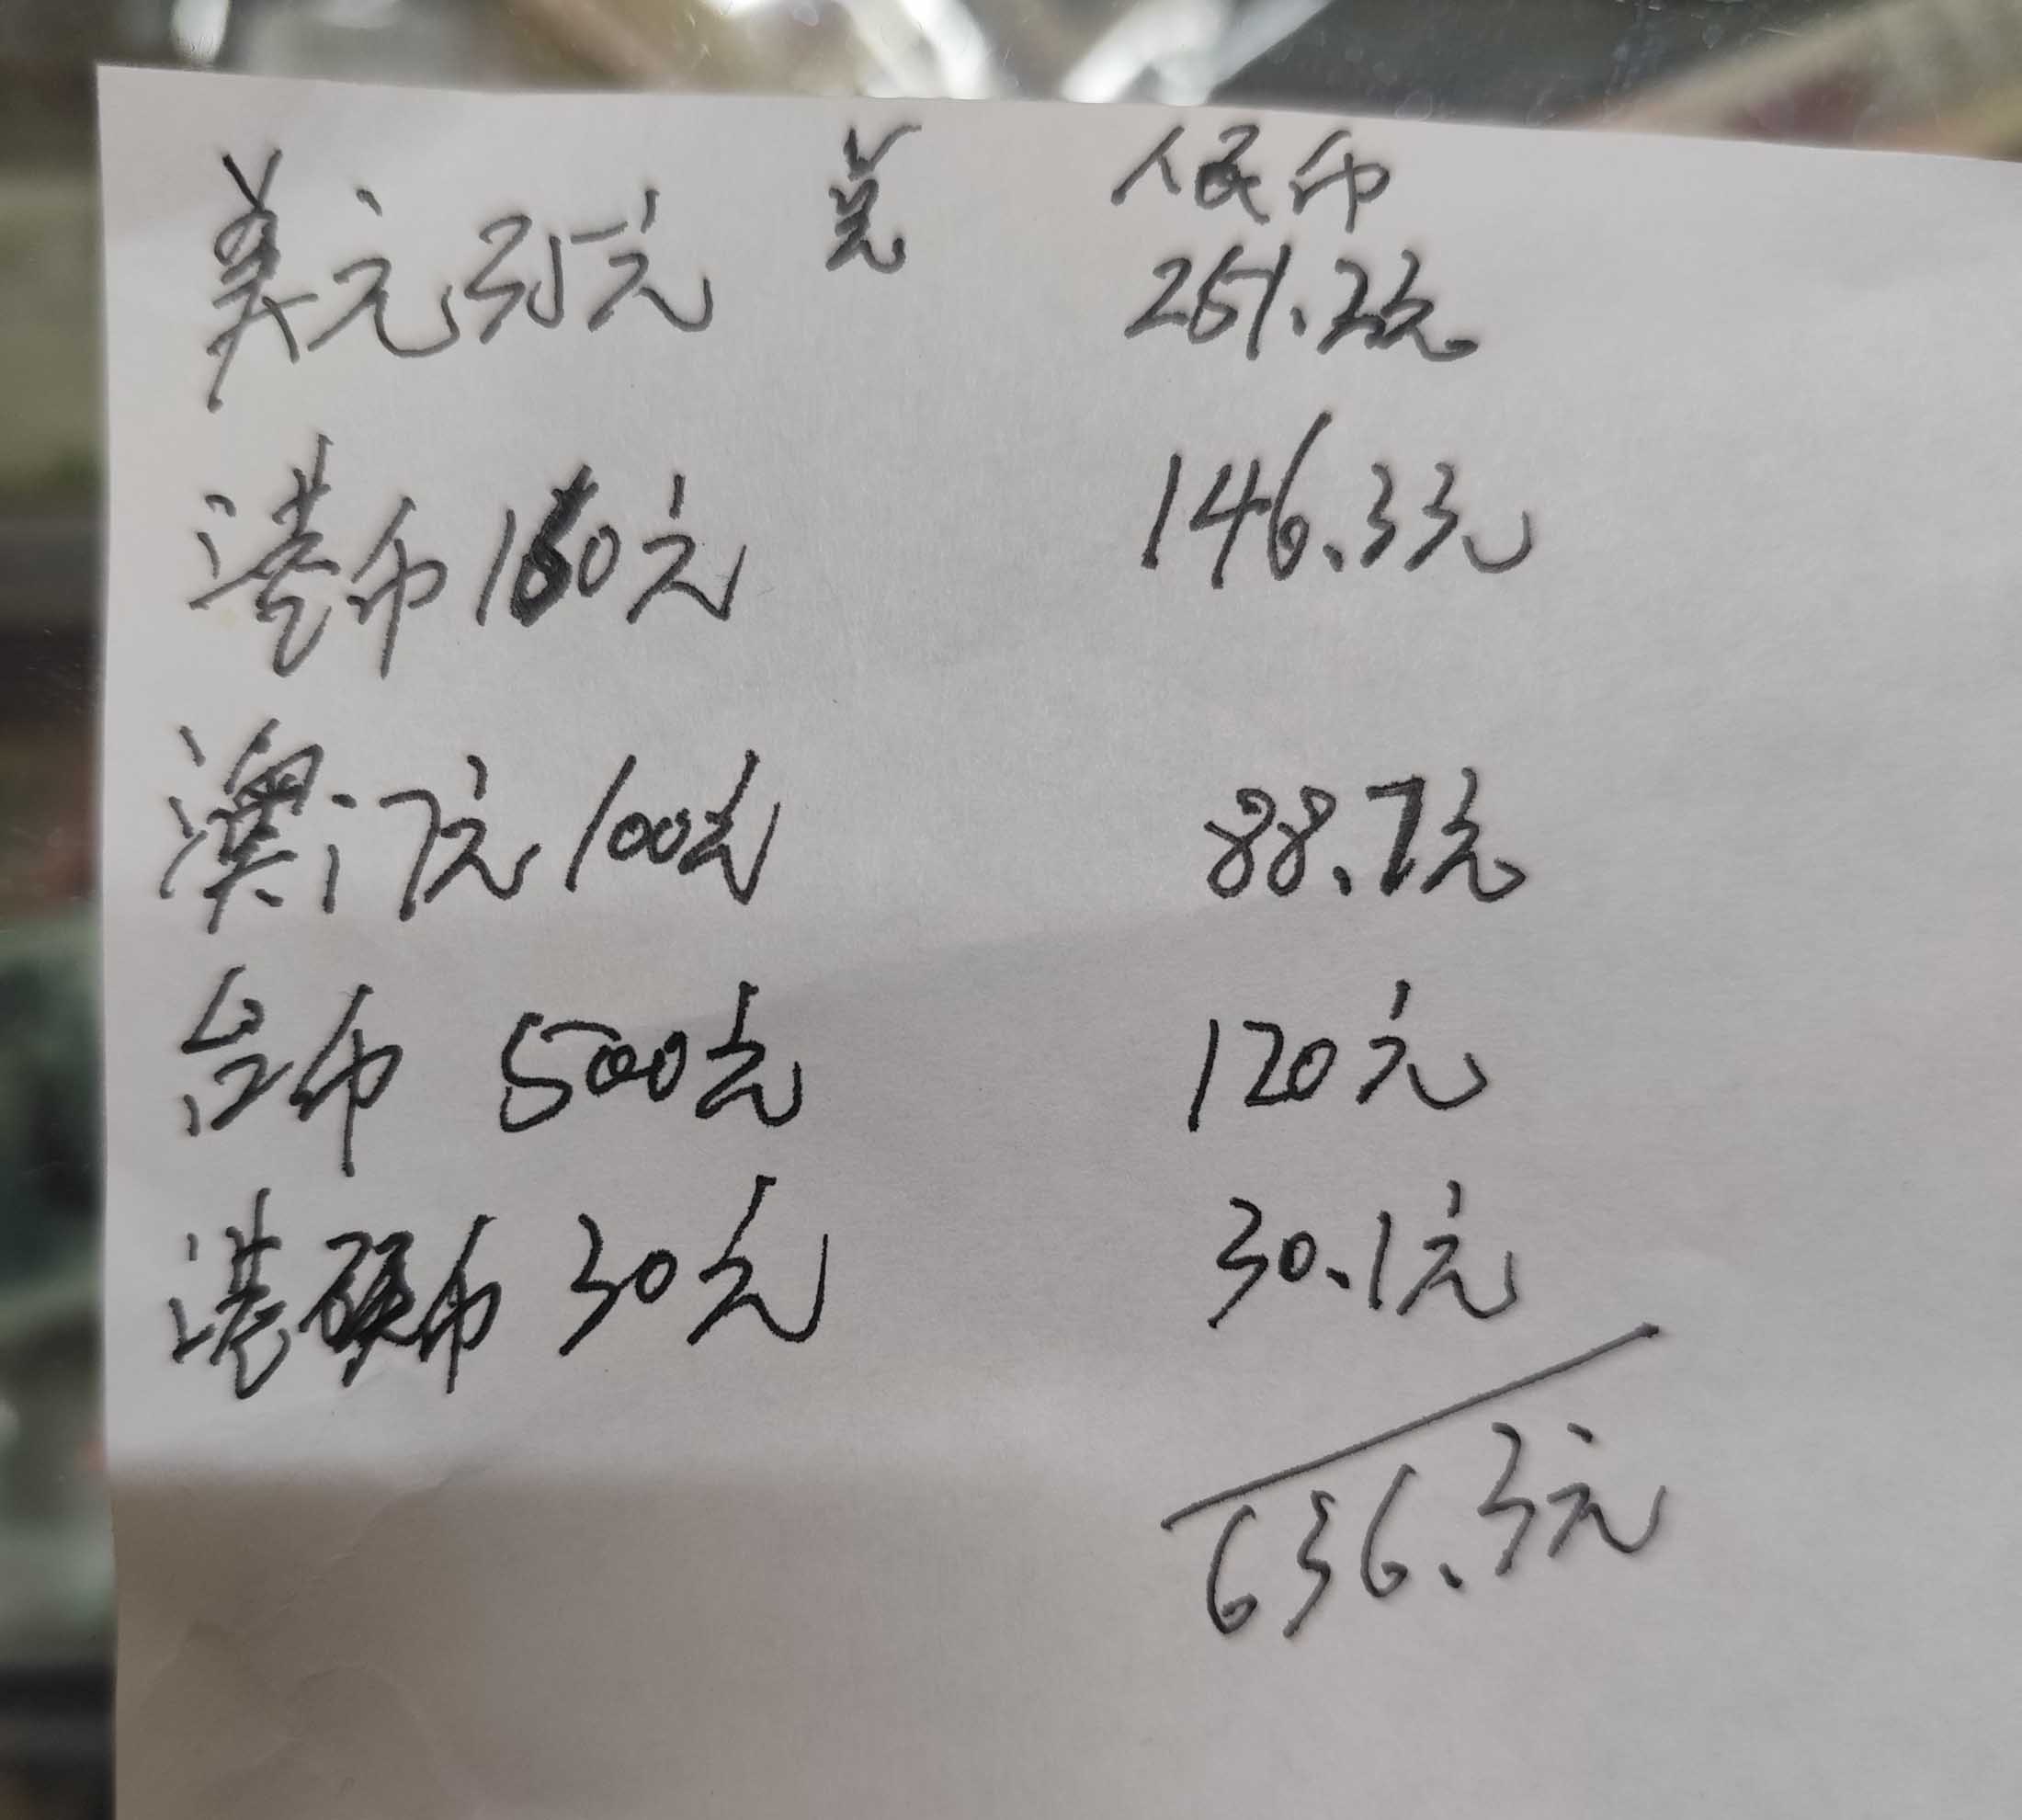 美元35元 兑 人民币
251.2元
港币160元 146.33元
澳门元100元 88.7元
台币 500元 120元
港硬币30元 30.1元
636.3元